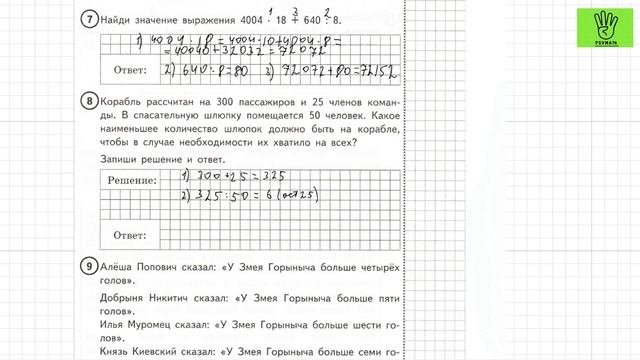 7 Найди значение выражения 4004 · 18 + 640 : 8.
1 3 2
1) 4004 · 18 = 4004·10+4004·8=
=40040+32032=72072
Ответ: 2) 640:8=80 3) 72072+80=72152
8 Корабль рассчитан на 300 пассажиров и 25 членов коман-
ды. В спасательную шлюпку помещается 50 человек. Какое
наименьшее количество шлюпок должно быть на корабле,
чтобы в случае необходимости их хватило на всех?
Запиши решение и ответ.
Решение: 1) 300+25=325
2) 325:50=6(ост25)
Ответ:
9 Алёша Попович сказал: «У Змея Горыныча больше четырёх
голов».
Добрыня Никитич сказал: «У Змея Горыныча больше пяти
голов».
Илья Муромец сказал: «У Змея Горыныча больше шести го-
лов».
Князь Киевский сказал: «У Змея Горыныча больше семи го-